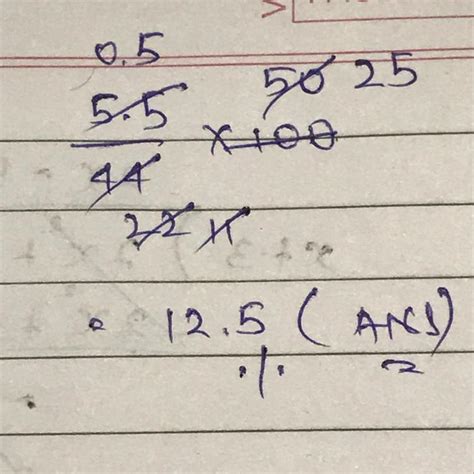 0.5
50 25
5.5
× 100
44
22 11
= 12.5 % (ANS)